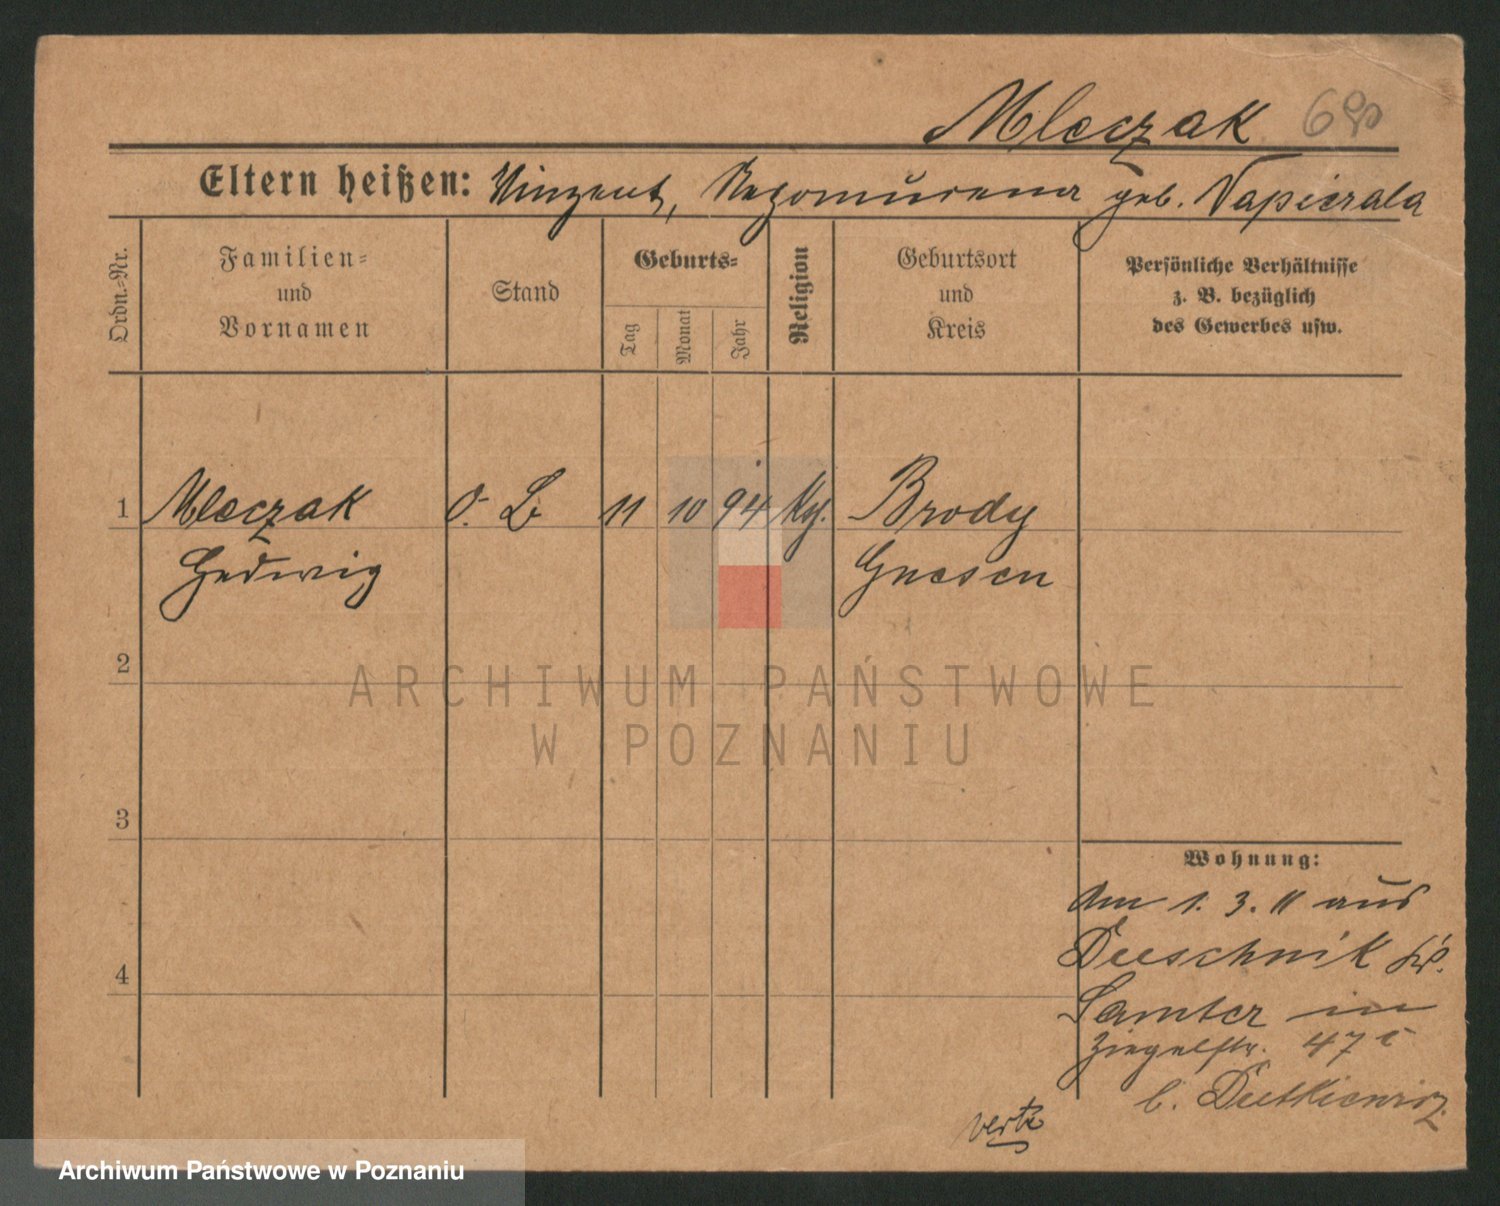 Mleczak
Eltern heißen: Vinzent, Nepomucena geb. Napierala
Ordn.-Nr.
Familien-
und
Vornamen
Stand
Geburts-
Tag
Monat
Jahr
Religion
Geburtsort
und
Kreis
Persönliche Verhältnisse
z. B. bezüglich
des Gewerbes usw.
1 Mleczak O. L 11 10 94 Brody
Hedwig Gnesen
2
3
4
Wohnung:
Am 1. 3. 11 aus
Duschnik
Samter in
Ziegelstr. 47
b. Dutkiewicz
ARCHIWUM PAŃSTWOWE
W POZNANIU
Archiwum Państwowe w Poznaniu